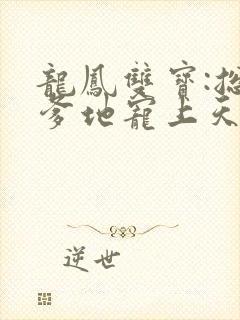 龍鳳雙寶:總
爹地寵上天
逆世